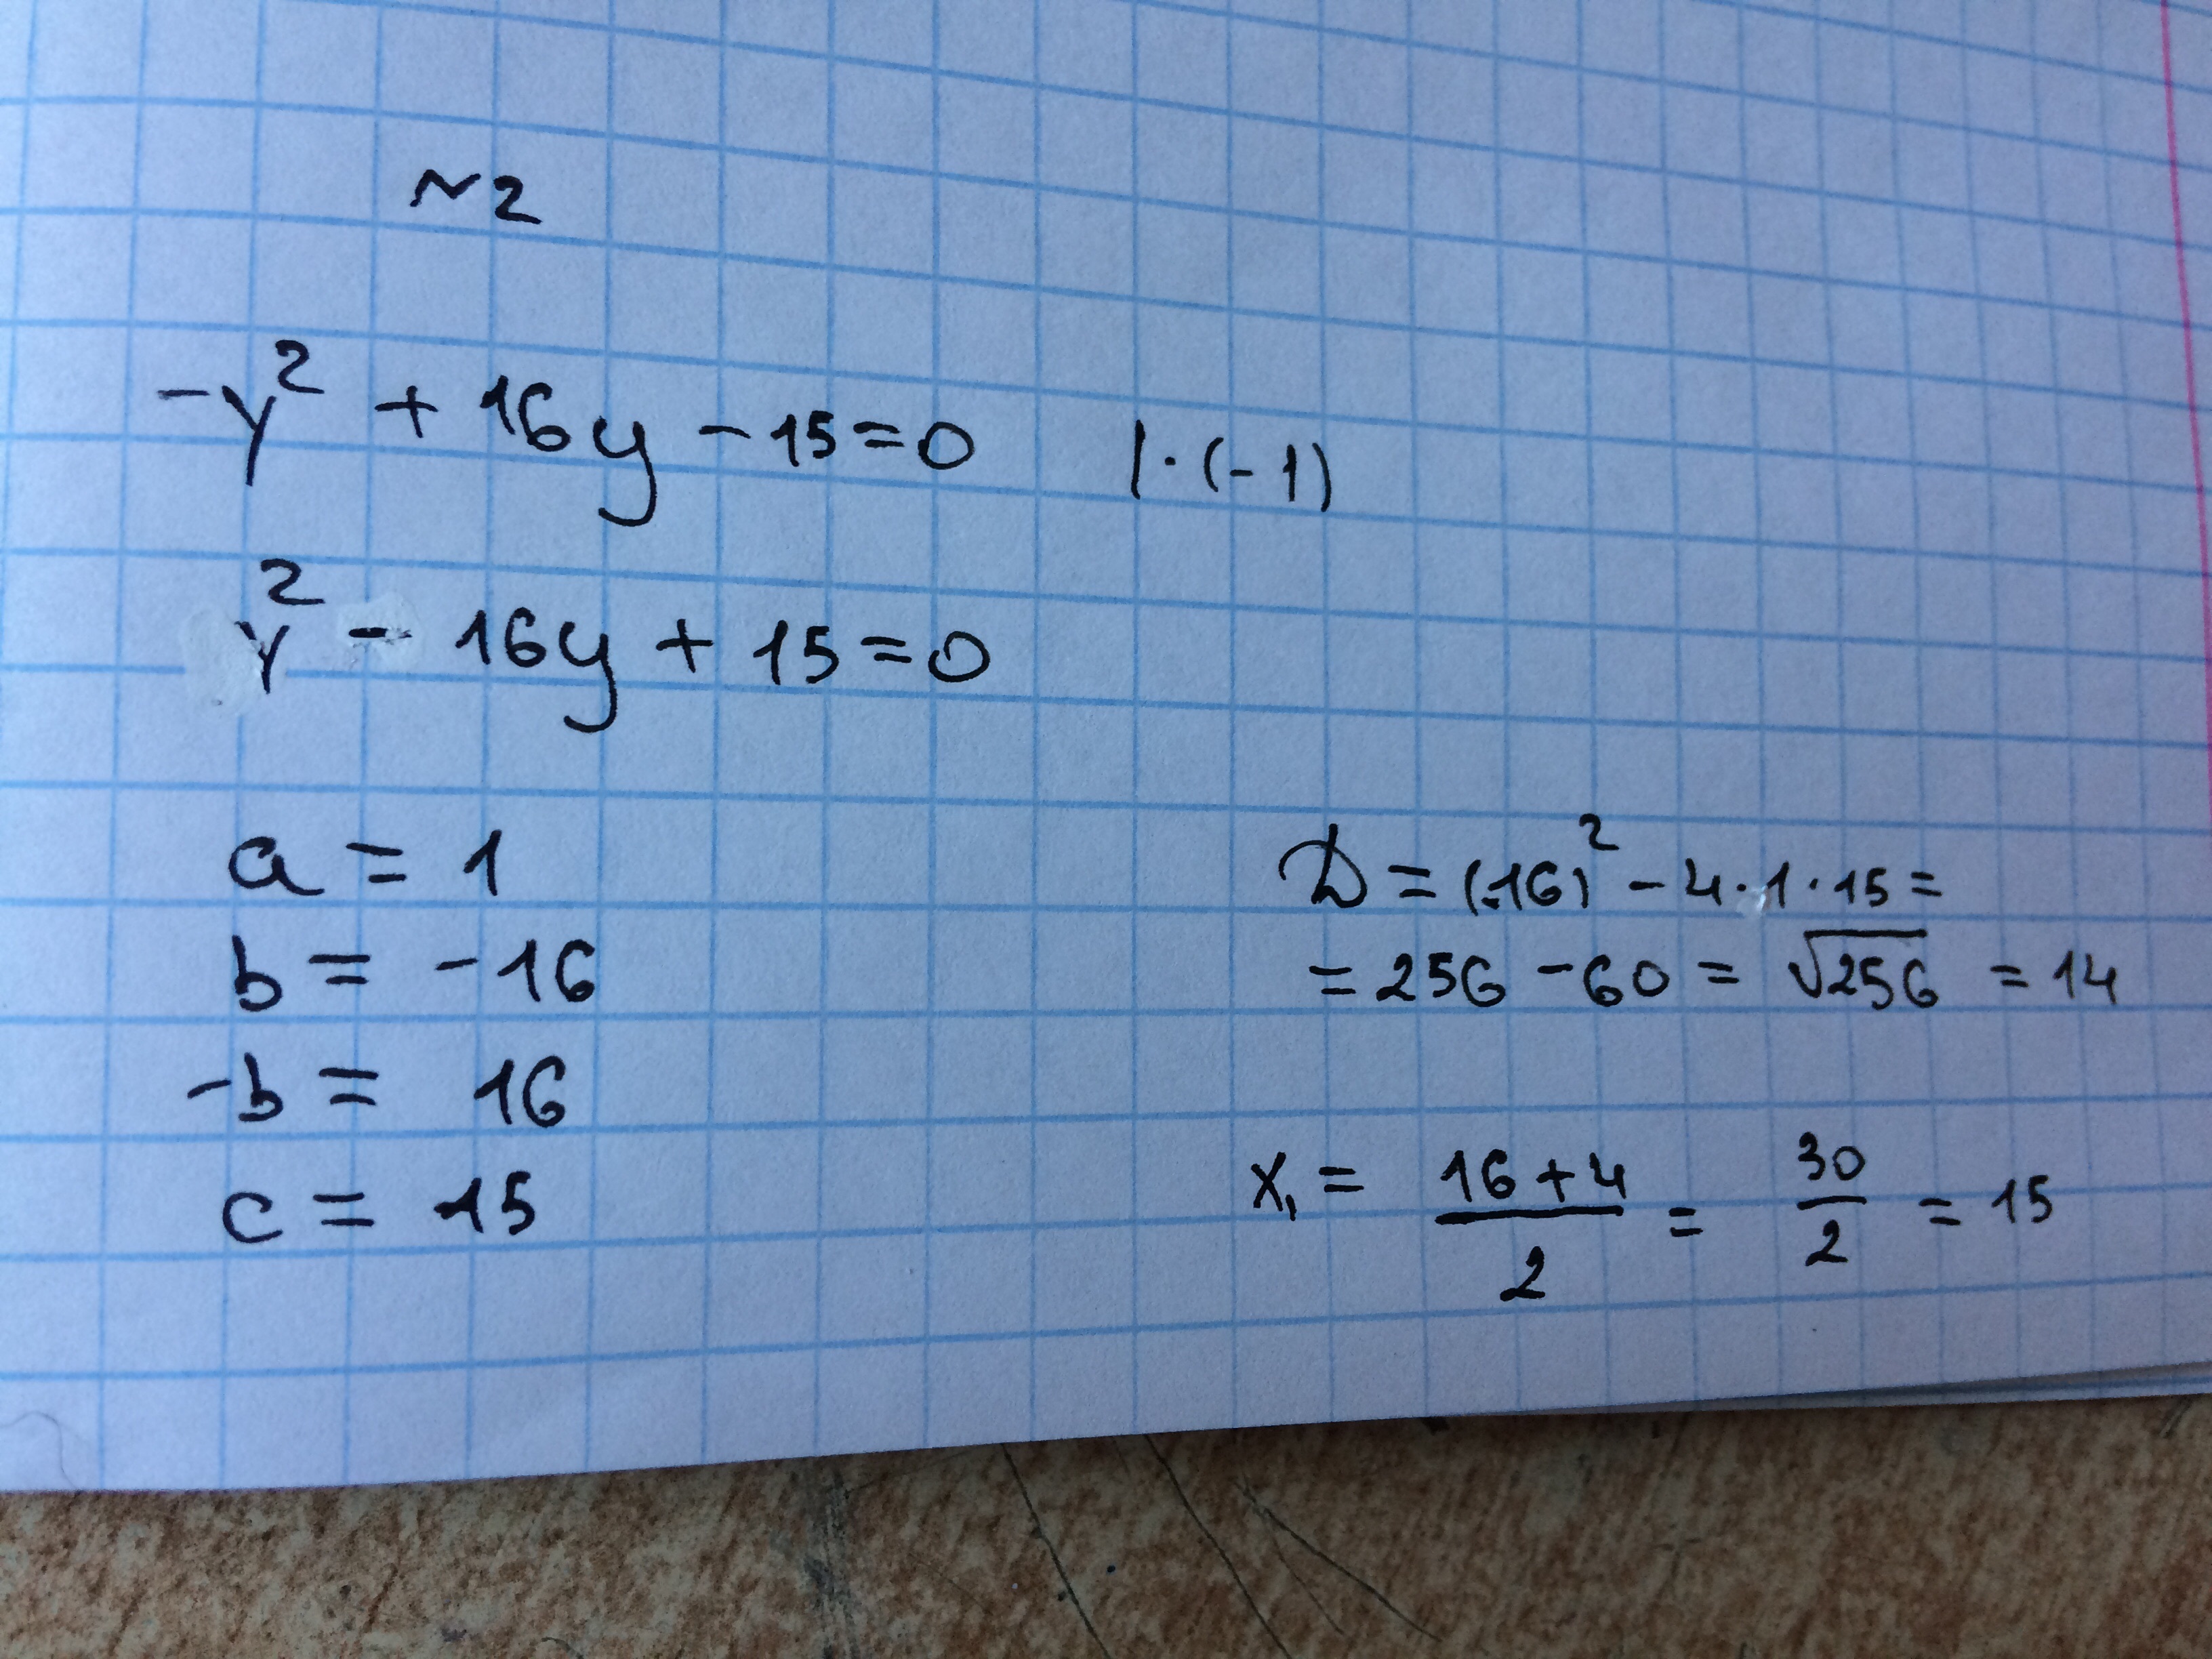 ~2
-y² + 16y - 15 = 0 | · (-1)
y² - 16y + 15 = 0
a = 1
b = -16
-b = 16
c = 15
D = (-16)² - 4 · 1 · 15 =
= 256 - 60 = √256 = 14
x₁ = (16 + 4)/2 = 30/2 = 15